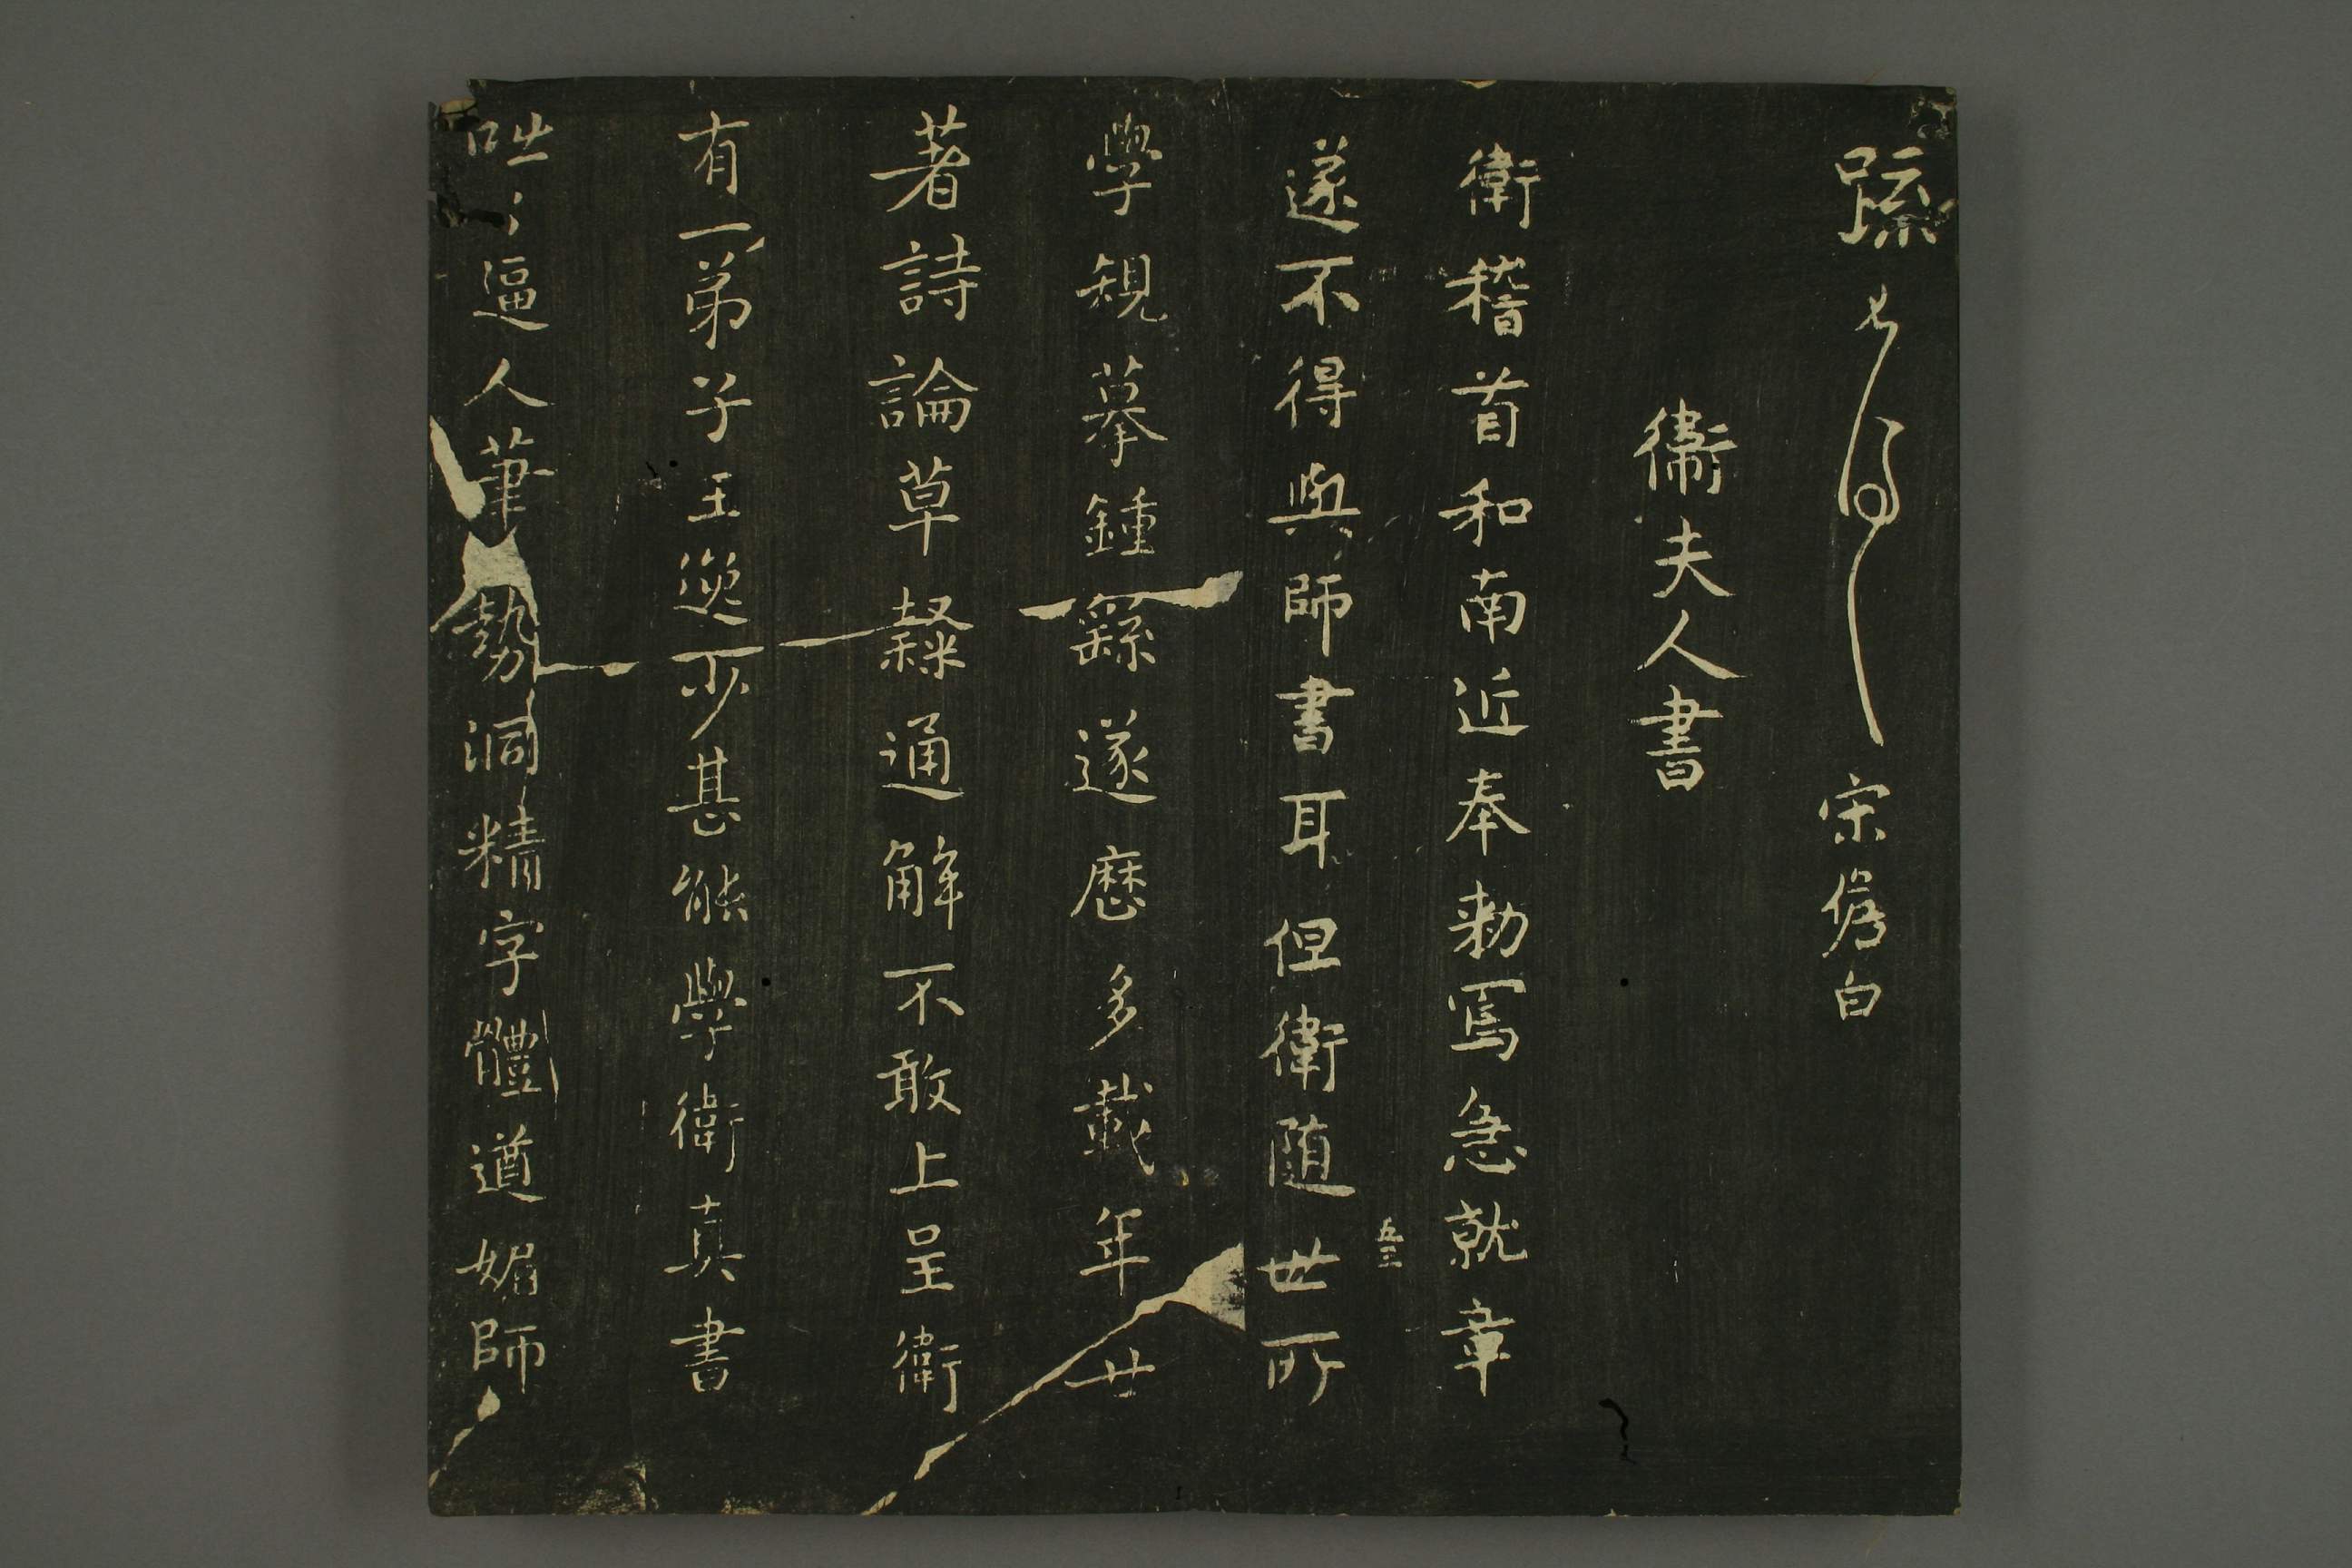 疏
宋儋白
衛夫人書
衛稽首和南近奉勑寫急就章
遂不得與師書耳但衛随世所
五三
學規摹鍾繇遂歷多載年廿
著詩論草隸通解不敢上呈衛
有一弟子王逸少甚能學衛真書
咄〻逼人筆勢洞精字體遒媚師